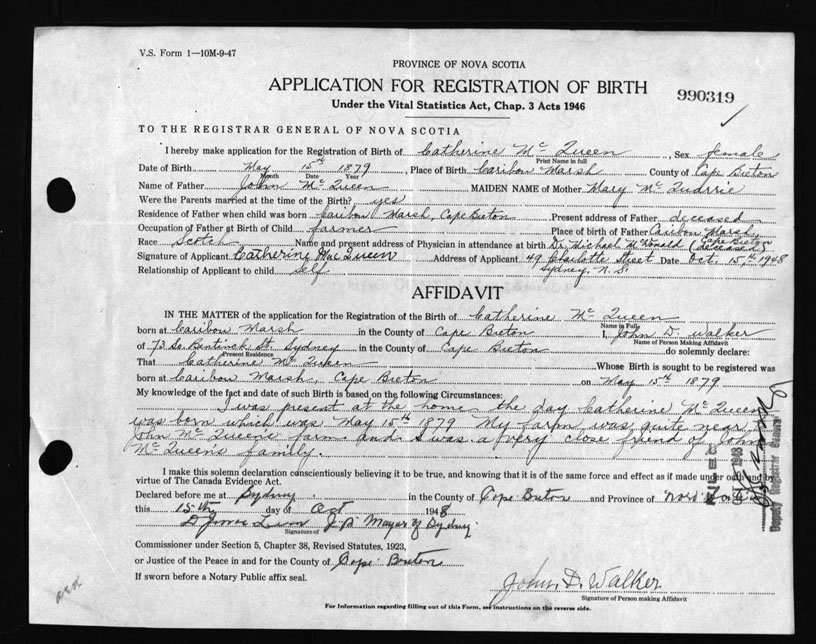 V.S. Form 1—10M-9-47
PROVINCE OF NOVA SCOTIA
APPLICATION FOR REGISTRATION OF BIRTH
990319
Under the Vital Statistics Act, Chap. 3 Acts 1946
TO THE REGISTRAR GENERAL OF NOVA SCOTIA
I hereby make application for the Registration of Birth of Catherine Mc Queen, Sex female
Print Name in full
Date of Birth May 15th 1879, Place of Birth Caribou Marsh County of Cape Breton
Month Date Year
Name of Father John Mc Queen MAIDEN NAME of Mother Mary Mc
Were the Parents married at the time of the Birth? yes
Residence of Father when child was born Caribou Marsh, Cape Breton Present address of Father deceased
Occupation of Father at Birth of Child farmer Place of birth of Father Caribou Marsh, Cape Breton
Race Scotch Name and present address of Physician in attendance at birth Dr. Michael (deceased)
Signature of Applicant Catherine Mac Queen Address of Applicant 49 Charlotte Street Date Oct. 15th 1948
Relationship of Applicant to child self Sydney, N.S.
AFFIDAVIT
IN THE MATTER of the application for the Registration of the Birth of Catherine Mc Queen
Name in Full
born at Caribou Marsh in the County of Cape Breton I, John D. Walker
Name of Person Making Affidavit
of 73 So. Bentinck St. Sydney in the County of Cape Breton do solemnly declare:
Present Residence
That Catherine Mc Queen Whose Birth is sought to be registered was
born at Caribou Marsh, Cape Breton on May 15th 1879
My knowledge of the fact and date of such Birth is based on the following Circumstances:
I was present at the home the day Catherine Mc Queen
was born which was May 15th 1879 My farm was quite near
John Mc Queens farm and I was a very close friend of John
Mc Queens family.
I make this solemn declaration conscientiously believing it to be true, and knowing that it is of the same force and effect as if made under oath and by
virtue of The Canada Evidence Act.
Declared before me at Sydney in the County of Cape Breton and Province of Nova Scotia
this 15th day of Oct 1948
J.P. Mayor of Sydney
Signature of
Commissioner under Section 5, Chapter 38, Revised Statutes, 1923,
or Justice of the Peace in and for the County of Cape Breton
If sworn before a Notary Public affix seal.
John D. Walker
Signature of Person making Affidavit
For Information regarding filling out of this Form, see instructions on the reverse side.
FILED
Deputy Registrar General